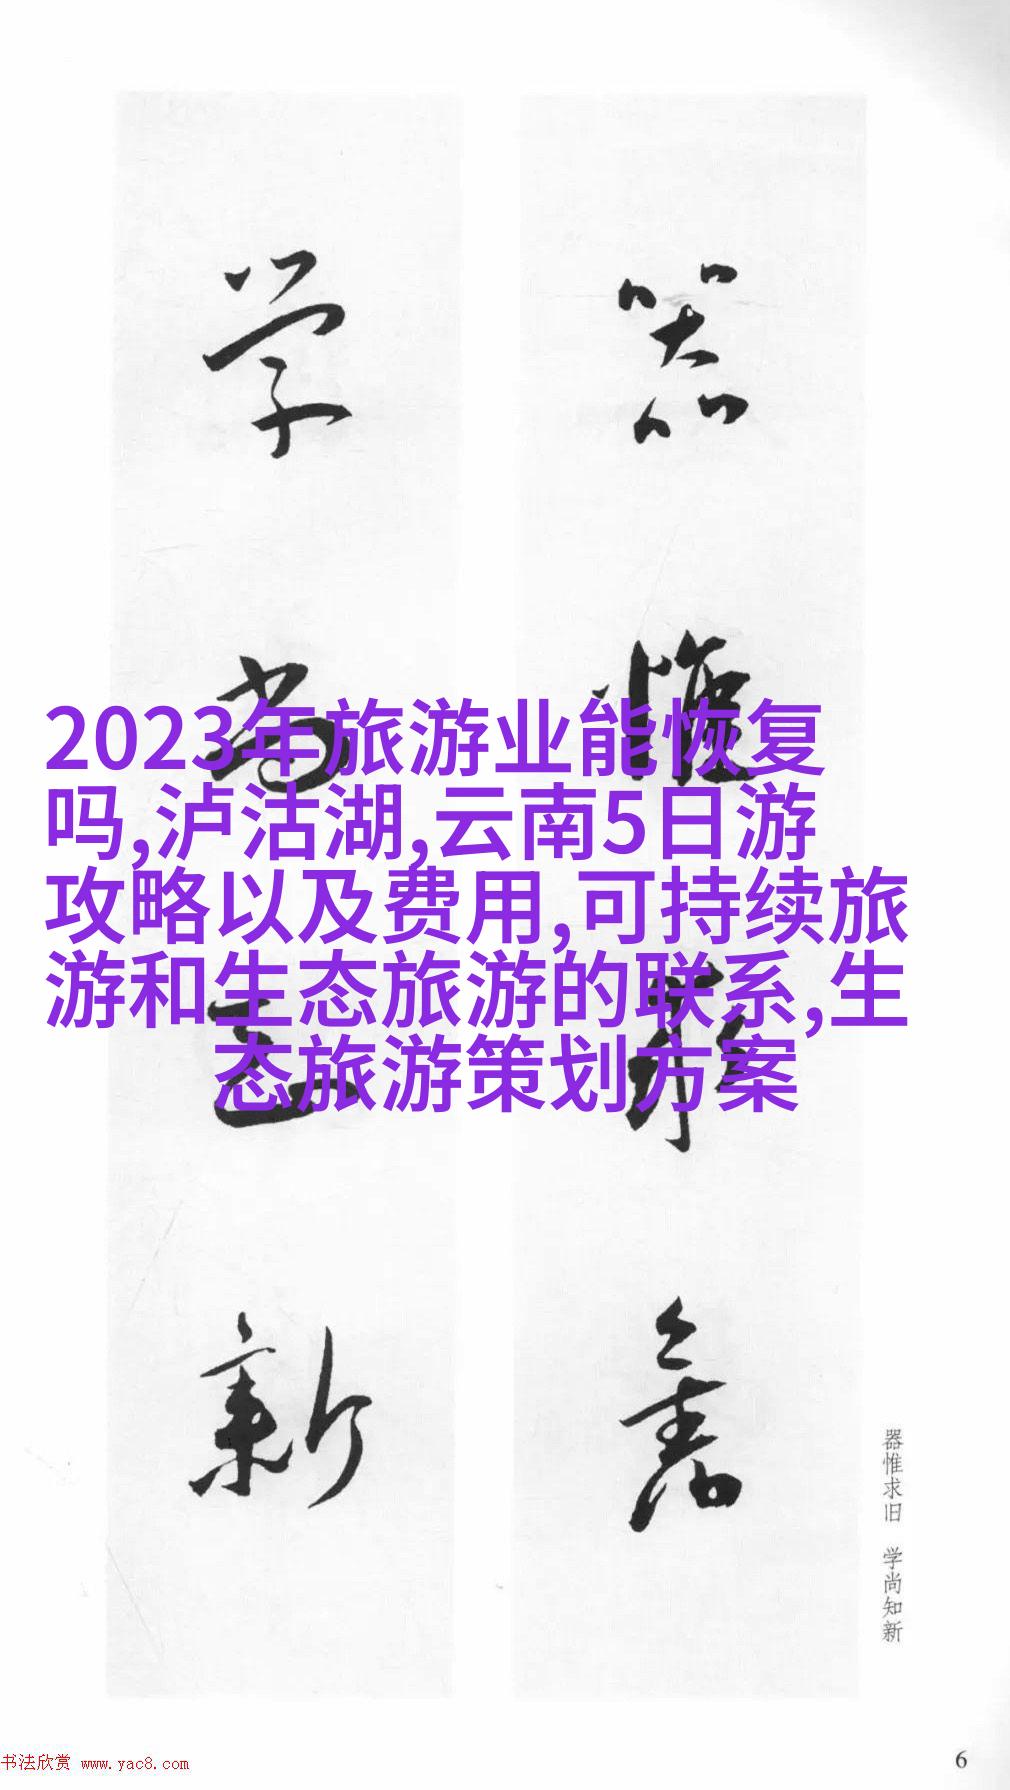 器惟求舊
学尚知新
2023年旅游业能恢复
吗,泸沽湖,云南5日游
攻略以及费用,可持续旅
游和生态旅游的联系,生
态旅游策划方案
器惟求旧 学尚知新
书法欣赏 www.yac8.com
6